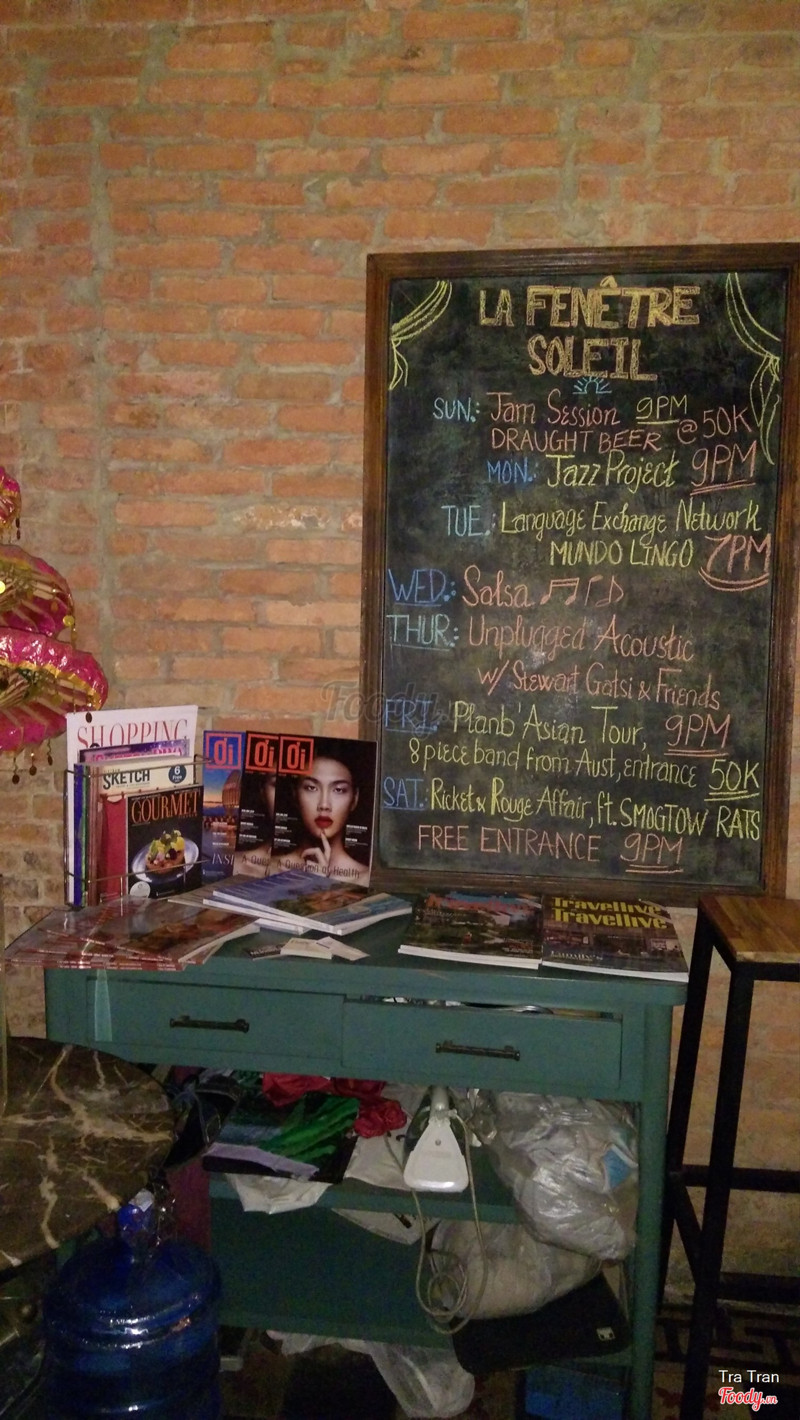 LA FENÊTRE
SOLEIL
SUN.: Jam Session 9PM
DRAUGHT BEER @ 50K
MON.: Jazz Project 9PM
TUE.: Language Exchange Network
MUNDO LINGO 7PM
WED.: Salsa
THUR.: Unplugged Acoustic
w/ Stewart Gatsi & Friends
FRI.: 'Planb' Asian Tour, 9PM
8 piece band from Aust, entrance 50K
SAT.: Ricket & Rouge Affair, ft. SMOGTOW RATS
FREE ENTRANCE 9PM
SHOPPING
SKETCH
GOURMET
Oi
Oi
Oi
A Question of Health
Travellive
Travellive
Foody
Tra Tran
Foody.vn